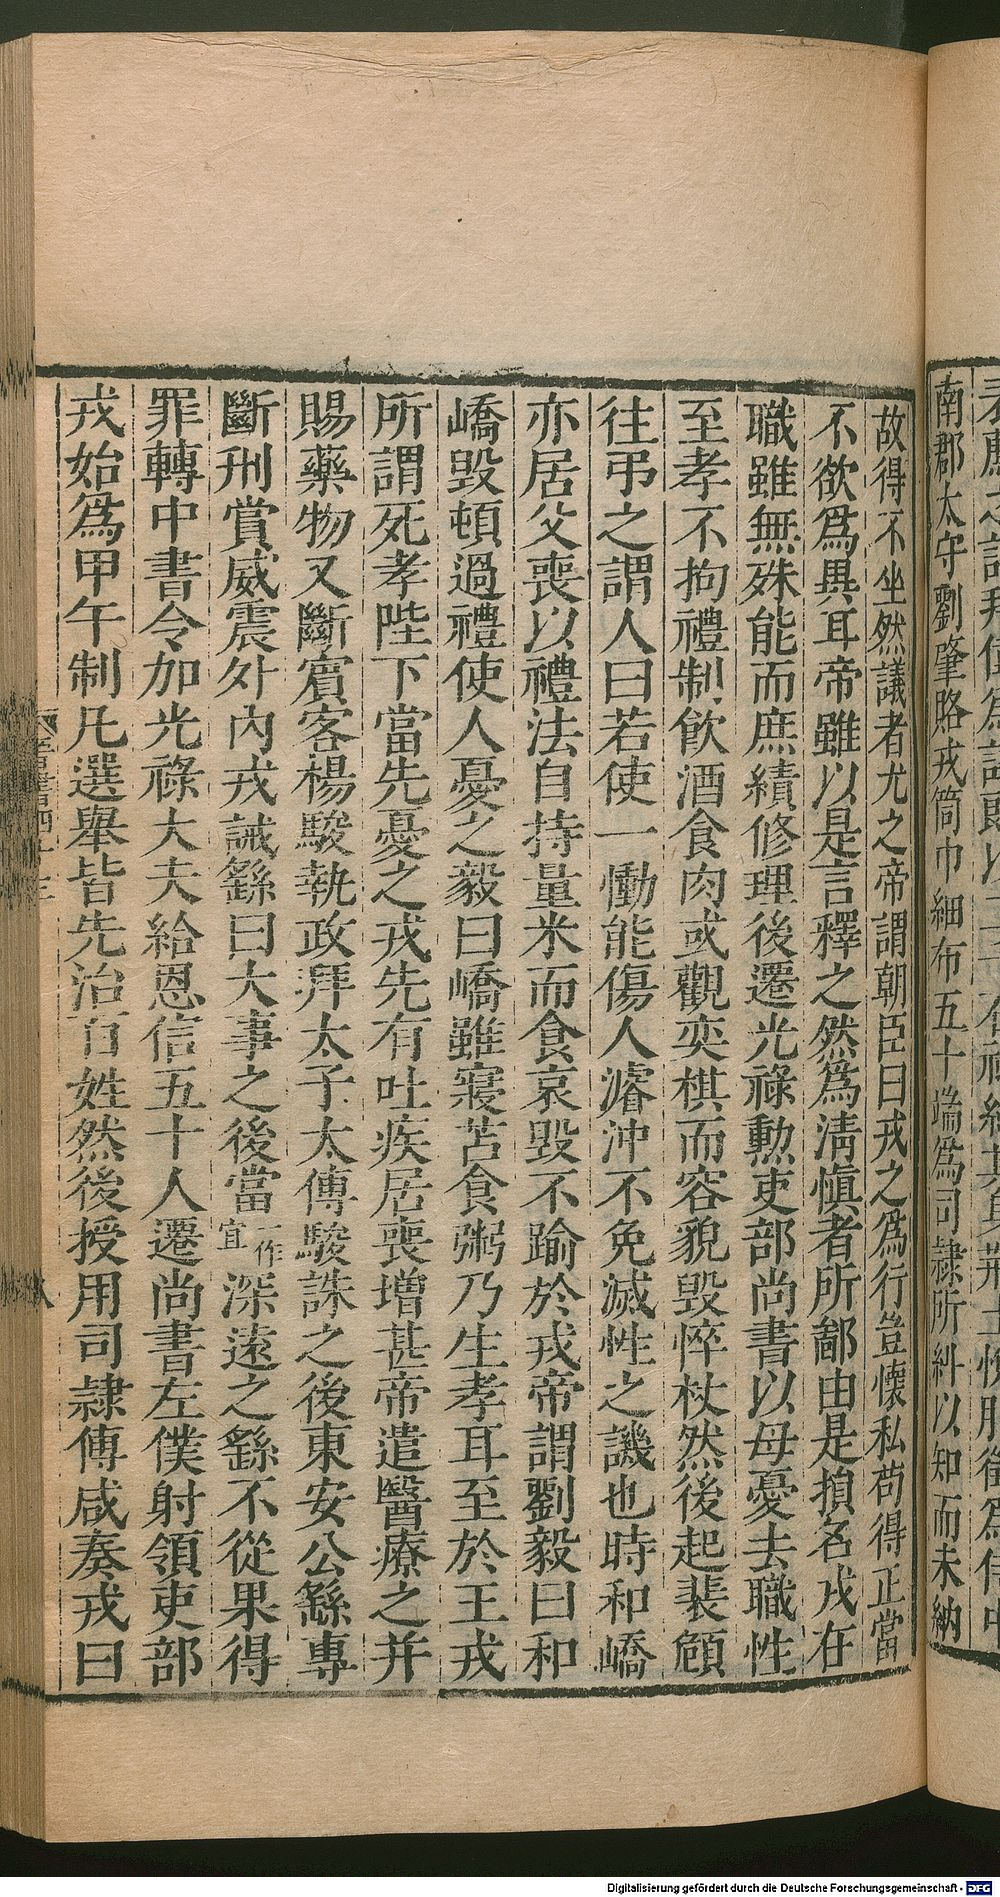 南郡太守劉肇賂戎筒巾細布五十端為司隷所糾以知而未納
故得不坐然議者尤之帝謂朝臣曰戎之為行豈懷私苟得正當
不欲為異耳帝雖以是言釋之然為清慎者所鄙由是損名戎在
職雖無殊能而庶績修理後遷光祿勲吏部尚書以母憂去職性
至孝不拘禮制飲酒食肉或觀奕棋而容貌毀悴杖然後起裴頠
往弔之謂人曰若使一慟能傷人濬沖不免滅性之譏也時和嶠
亦居父喪以禮法自持量米而食哀毀不踰於戎帝謂劉毅曰和
嶠毀頓過禮使人憂之毅曰嶠雖寢苫食粥乃生孝耳至於王戎
所謂死孝陛下當先憂之戎先有吐疾居喪增甚帝遣醫療之并
賜藥物又斷賓客楊駿執政拜太子太傅駿誅之後東安公繇專
斷刑賞威震外內戎誡繇曰大事之後當一作宜深遠之繇不從果得
罪轉中書令加光祿大夫給恩信五十人遷尚書左僕射領吏部
戎始為甲午制凡選舉皆先治百姓然後授用司隷傅咸奏戎曰
Digitalisierung gefördert durch die Deutsche Forschungsgemeinschaft - DFG